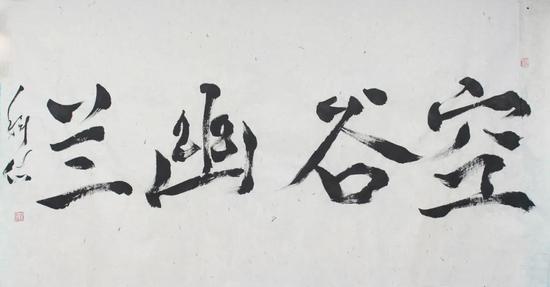 空谷幽兰